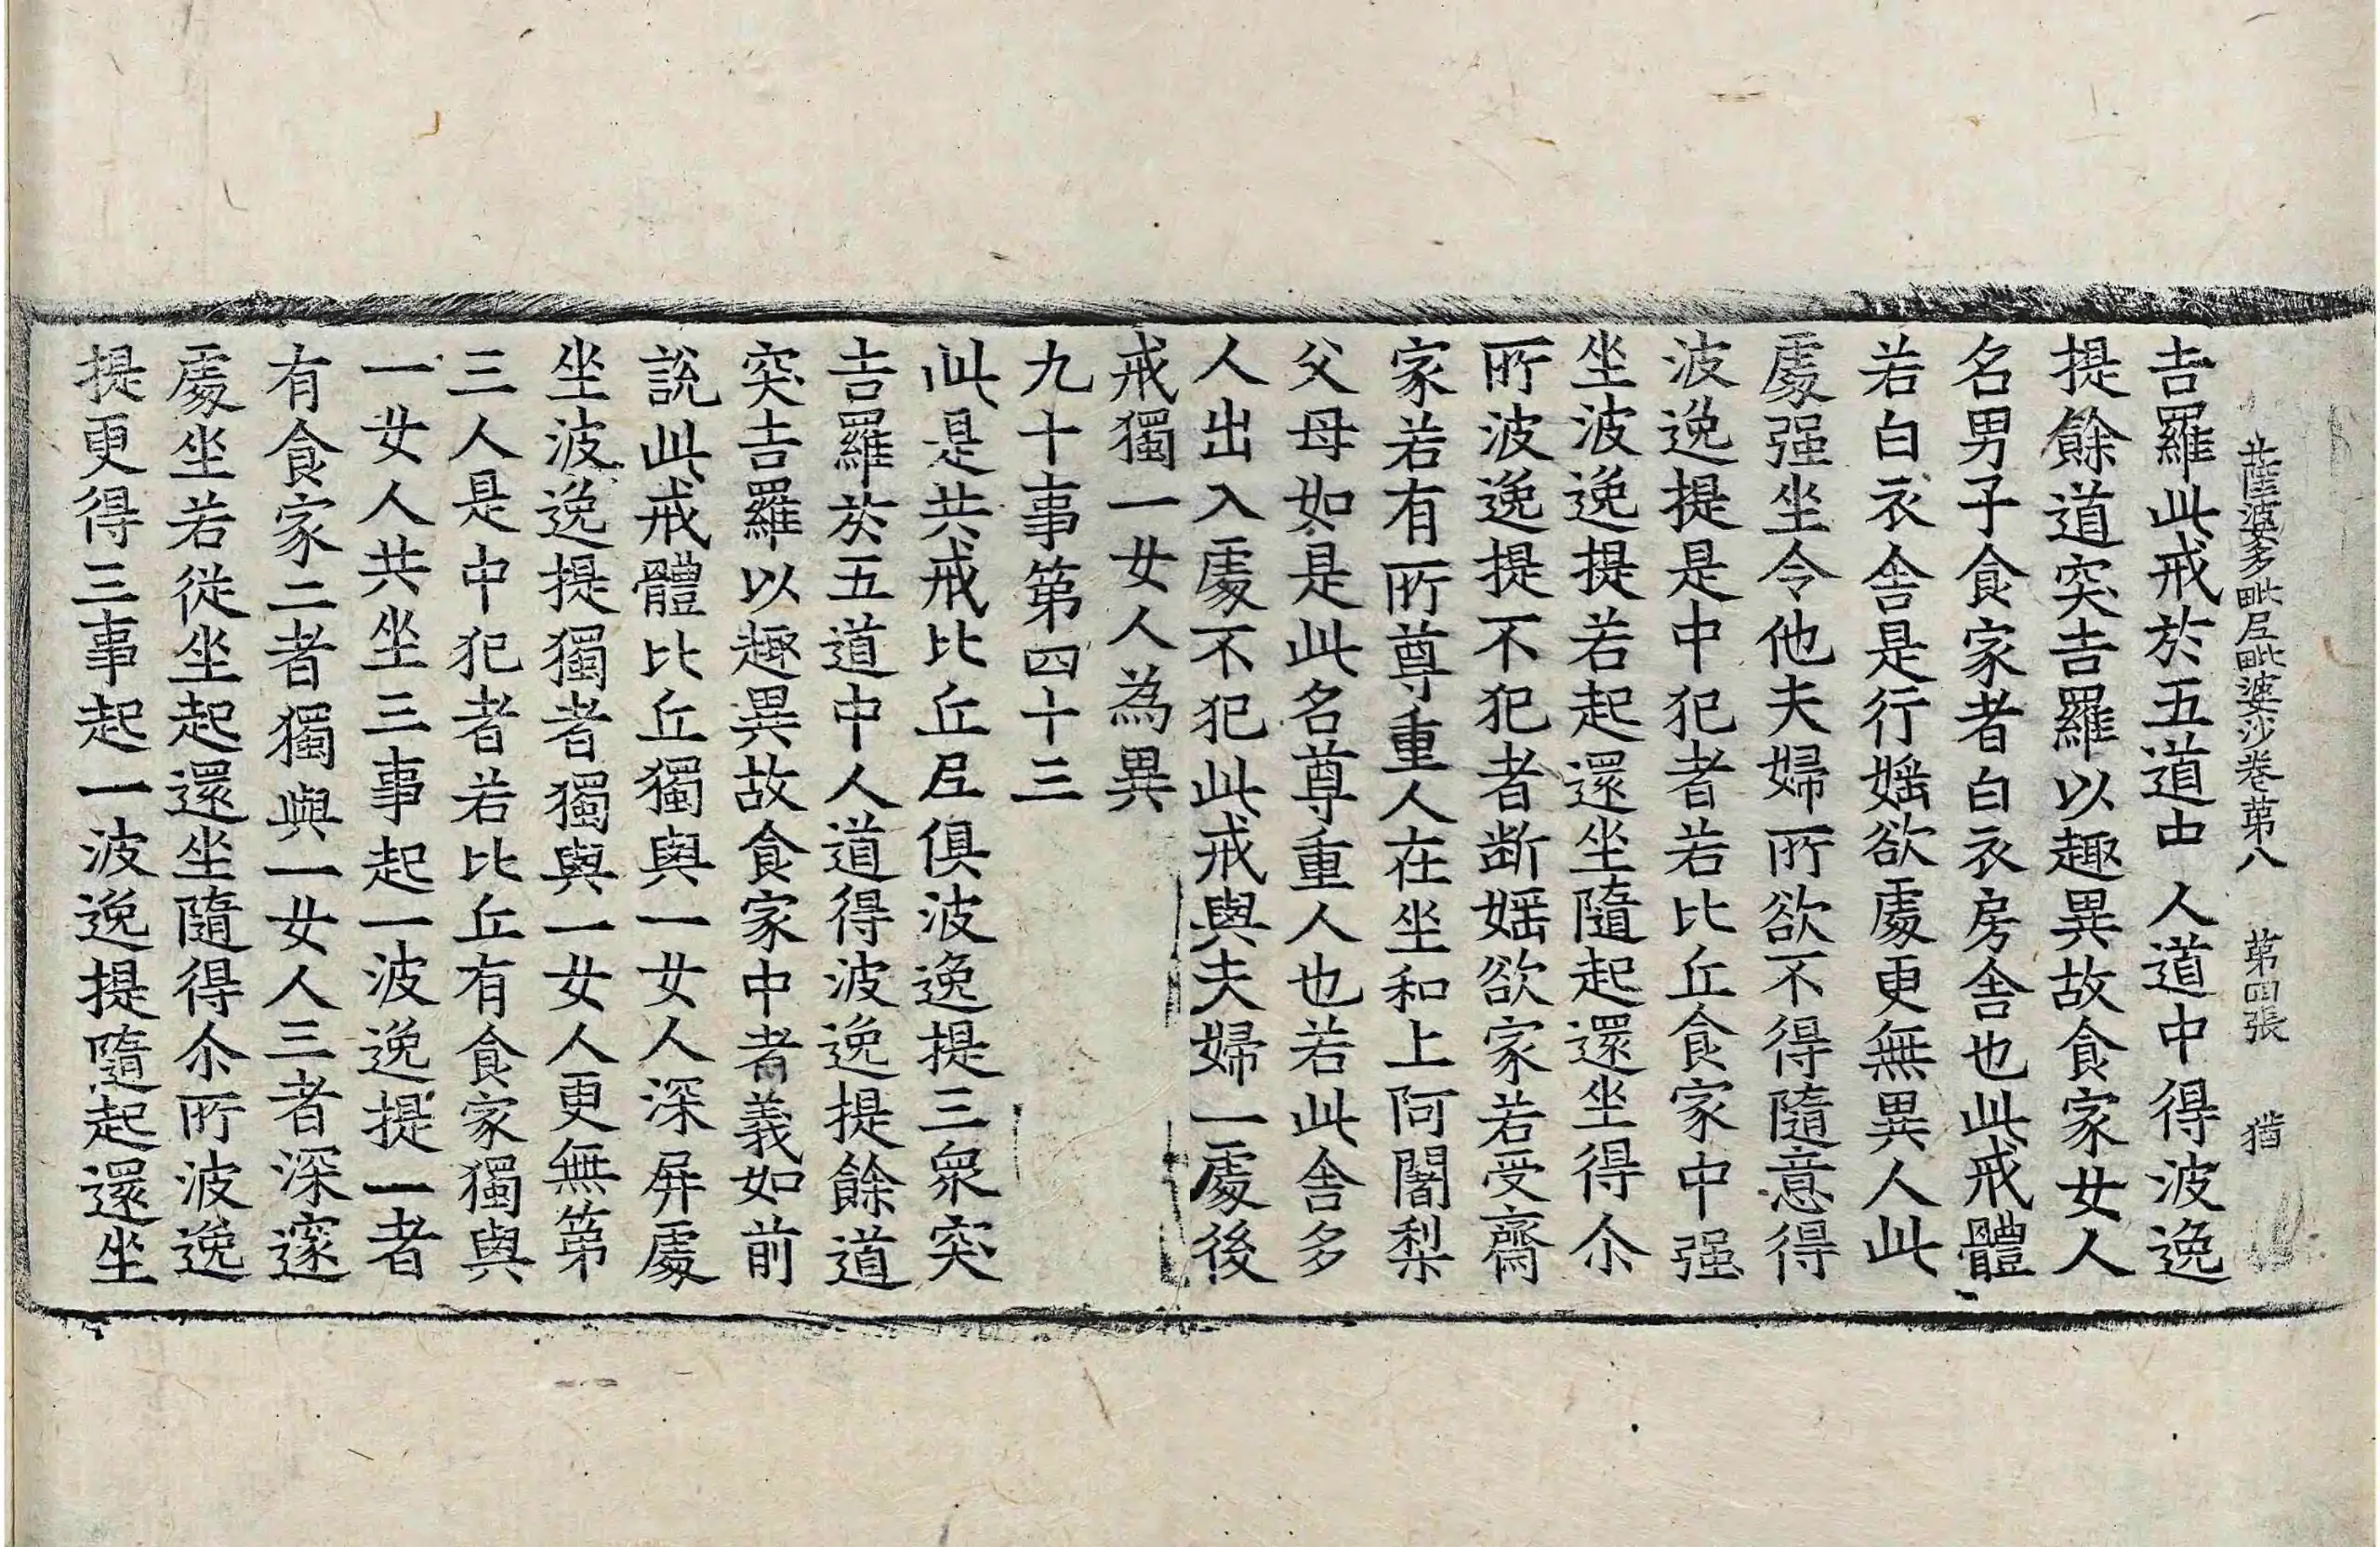 薩婆多毗尼毗婆沙卷第八 第四張 猶
吉羅此戒於五道中人道中得波逸
提餘道突吉羅以趣異故食家女人
名男子食家者白衣房舍也此戒體
若白衣舍是行婬欲處更無異人此
處强坐令他夫婦所欲不得隨意得
波逸提是中犯者若比丘食家中强
坐波逸提若起還坐隨起還坐得尒
所波逸提不犯者斷婬欲家若受齋
家若有所尊重人在坐和上阿闍梨
父母如是此名尊重人也若此舍多
人出入處不犯此戒與夫婦一處後
戒獨一女人為異
九十事第四十三
此是共戒比丘尼俱波逸提三衆突
吉羅於五道中人道得波逸提餘道
突吉羅以趣異故食家中者義如前
說此戒體比丘獨與一女人深屏處
坐波逸提獨者獨與一女人更無第
三人是中犯者若比丘有食家獨與
一女人共坐三事起一波逸提一者
有食家二者獨與一女人三者深邃
處坐若從坐起還坐隨得尒所波逸
提更得三事起一波逸提隨起還坐